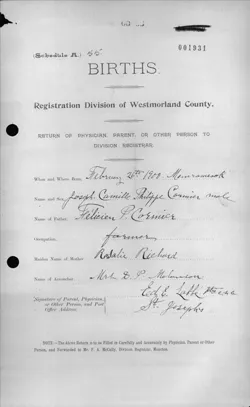 001931
(Schedule A.) 55
BIRTHS.
Registration Division of Westmorland County.
RETURN OF PHYSICIAN, PARENT, OR OTHER PERSON TO
DIVISION REGISTRAR.
When and Where Born February Memramcook
Name and Sex Joseph Camille Philippe Cormier male
Name of Father Felicien P Cormier
Occupation farmer
Maiden Name of Mother Rosalie Richard
Name of Accoucheur Mrs D. P.
(Signature of Parent, Physician,
or Other Person, and Post
Office Address.)
St. Joseph
NOTE.—The Above Return is to be Filled in Carefully and
Person, and Forwarded to Mr. Division Registrar, Moncton.